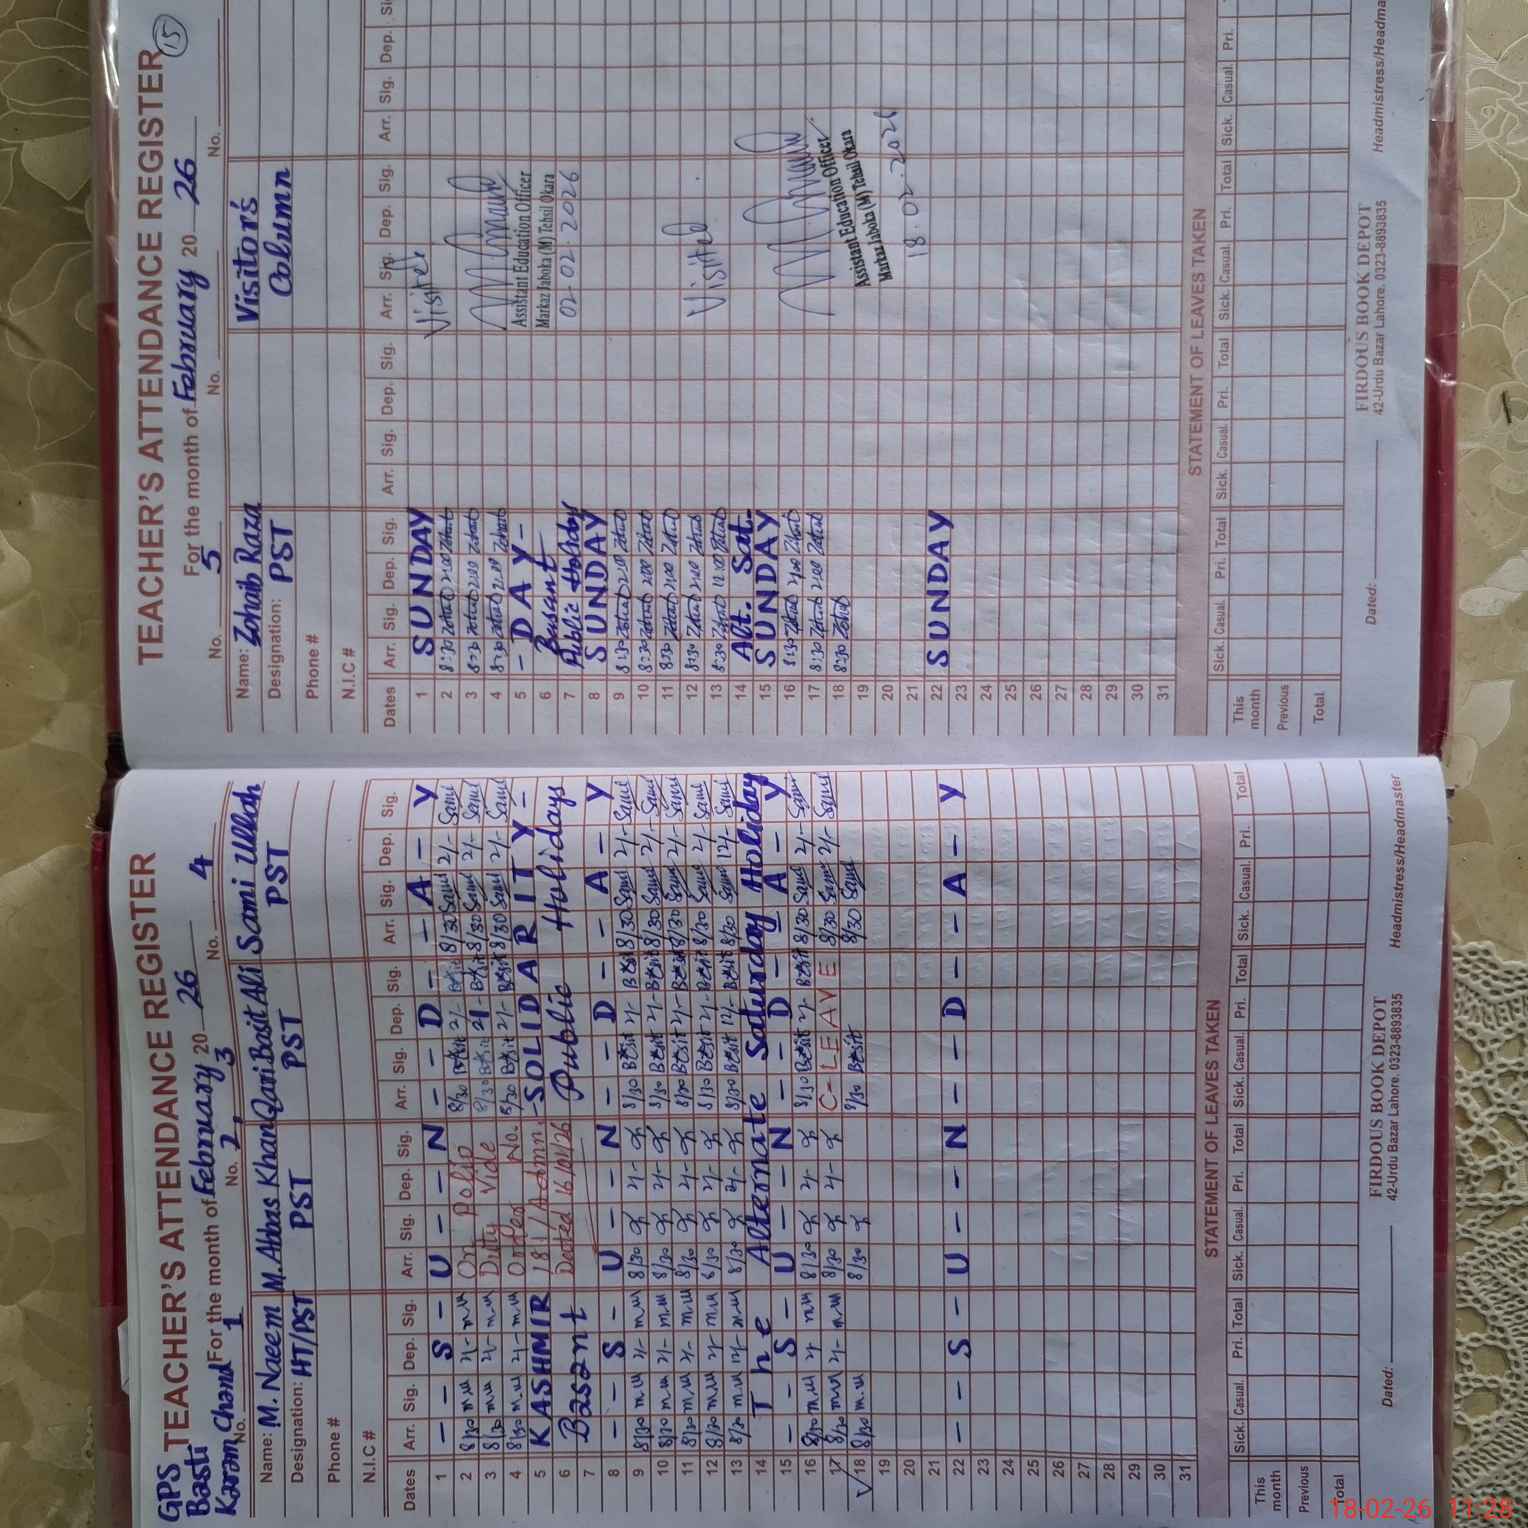 GPS
Basti
Karam Chand
TEACHER'S ATTENDANCE REGISTER
For the month of February 20 26
No. 1 No. 2, 3 No. 4
Name: M. Naeem M. Abbas Khan Qari Basit Ali Sami Ullah
Designation: HT/PST PST PST PST
Phone #
N.I.C #
Dates Arr. Sig. Dep. Sig. Arr. Sig. Dep. Sig. Arr. Sig. Dep. Sig. Arr. Sig. Dep. Sig.
1 - - S - U - - N - - D - - A - Y
2 8/30 m.u 2/- m.u On Polio 8/30 Basit 2/- Basit 8/30 Sami 2/- Sami
3 8/30 m.u 2/- m.u Duty Vide 8/30 Basit 2/- Basit 8/30 Sami 2/- Sami
4 8/30 m.u 2/- m.u Order No. 8/30 Basit 2/- Basit 8/30 Sami 2/- Sami
5 KASHMIR 181/Admn. -SOLIDARITY-
6 Basant Dated 16/01/26 Public Holidays
7
8 - - S - U - - N - - D - - A - Y
9 8/30 m.u 2/- m.u 8/30 2/- 8/30 Basit 2/- Basit 8/30 Sami 2/- Sami
10 8/30 m.u 2/- m.u 8/30 2/- 8/30 Basit 2/- Basit 8/30 Sami 2/- Sami
11 8/30 m.u 2/- m.u 8/30 2/- 8/30 Basit 2/- Basit 8/30 Sami 2/- Sami
12 8/30 m.u 2/- m.u 8/30 2/- 8/30 Basit 2/- Basit 8/30 Sami 2/- Sami
13 8/30 m.u 12/- m.u 8/30 8/30 Basit 12/- Basit 8/30 Sami 12/- Sami
14 The Alternate Saturday Holiday
15 - - S - U - - N - - D - - A - Y
16 8/30 m.u 2/- m.u 8/30 2/- 8/30 Basit 2/- Basit 8/30 Sami 2/- Sami
17 8/30 m.u 2/- m.u 8/30 2/- C-LEAVE 8/30 Sami 2/- Sami
18 8/30 m.u 8/30 8/30 Basit 8/30 Sami
19
20
21
22 - - - S - U - - N - - D - - A - Y
23
24
25
26
27
28
29
30
31
STATEMENT OF LEAVES TAKEN
Sick. Casual. Pri. Total Sick. Casual. Pri. Total Sick. Casual. Pri. Total Sick. Casual. Pri. Total
This month
Previous
Total
Dated:
FIRDOUS BOOK DEPOT
42-Urdu Bazar Lahore. 0323-8893835
Headmistress/Headmaster
TEACHER'S ATTENDANCE REGISTER 15
For the month of February 20 26
No. 5 No. No.
Name: Zohaib Raza Visitor's
Designation: PST Column
Phone #
N.I.C #
Dates Arr. Sig. Dep. Sig. Arr. Sig. Dep. Sig. Arr. Sig. Dep. Sig. Arr. Sig. Dep.
1 SUNDAY Visited
2 8:30 Zohaib 2:00 Zohaib
3 8:30 Zohaib 2:00 Zohaib
4 8:30 Zohaib 2:00 Zohaib
5 - DAY - Assistant Education Officer
6 Basant Markaz Jaboka (M) Tehsil Okara
7 Public Holiday 02-02-2026
8 SUNDAY
9 8:30 Zohaib 2:00 Zohaib
10 8:30 Zohaib 2:00 Zohaib
11 8:30 Zohaib 2:00 Zohaib
12 8:30 Zohaib 2:00 Zohaib Visited
13 8:30 Zohaib 12:00 Zohaib
14 Alt. Sat.
15 SUNDAY
16 8:30 Zohaib 2:00 Zohaib
17 8:30 Zohaib 2:00 Zohaib
18 8:30 Zohaib Assistant Education Officer
19 Markaz Jaboka (M) Tehsil Okara
20 18.02.2026
21
22 SUNDAY
23
24
25
26
27
28
29
30
31
STATEMENT OF LEAVES TAKEN
Sick. Casual. Pri. Total Sick. Casual. Pri. Total Sick. Casual. Pri. Total Sick. Casual. Pri.
This month
Previous
Total
Dated:
FIRDOUS BOOK DEPOT
42-Urdu Bazar Lahore. 0323-8893835
Headmistress/Headma
18-02-26 11:28